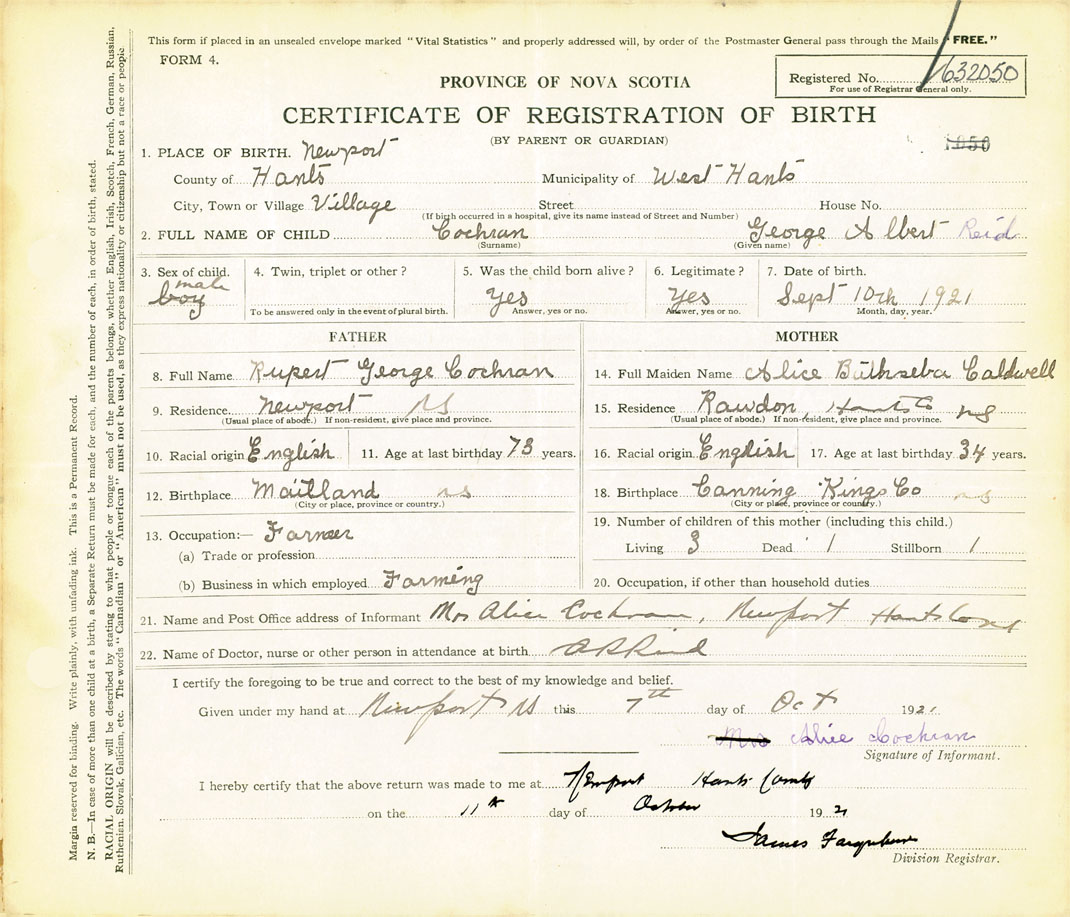 This form if placed in an unsealed envelope marked "Vital Statistics" and properly addressed will, by order of the Postmaster General pass through the Mails "FREE."
FORM 4.
PROVINCE OF NOVA SCOTIA
Registered No. 632050
For use of Registrar General only.
CERTIFICATE OF REGISTRATION OF BIRTH
(BY PARENT OR GUARDIAN)
1. PLACE OF BIRTH. Newport
County of Hants Municipality of West Hants
City, Town or Village Village Street House No.
(If birth occurred in a hospital, give its name instead of Street and Number)
2. FULL NAME OF CHILD Cochran George Albert Reid
(Surname) (Given name)
3. Sex of child. 4. Twin, triplet or other? 5. Was the child born alive? 6. Legitimate? 7. Date of birth.
male
boy Yes Yes Sept 10th 1921
To be answered only in the event of plural birth. Answer, yes or no. Answer, yes or no. Month, day, year.
FATHER
8. Full Name Rupert George Cochran
9. Residence Newport NS
(Usual place of abode.) If non-resident, give place and province.
10. Racial origin English 11. Age at last birthday 73 years.
12. Birthplace Maitland ns
(City or place, province or country.)
13. Occupation:— Farmer
(a) Trade or profession
(b) Business in which employed Farming
MOTHER
14. Full Maiden Name Alice Bathseba Caldwell
15. Residence Rawdon, Hants Co ns
(Usual place of abode.) If non-resident, give place and province.
16. Racial origin English 17. Age at last birthday 34 years.
18. Birthplace Canning Kings Co ns
(City or place, province or country.)
19. Number of children of this mother (including this child.)
Living 3 Dead 1 Stillborn 1
20. Occupation, if other than household duties
21. Name and Post Office address of Informant Mrs Alice Cochran, Newport Hants Co ns
22. Name of Doctor, nurse or other person in attendance at birth
I certify the foregoing to be true and correct to the best of my knowledge and belief.
Given under my hand at Newport NS this 7th day of Oct 1921
Mrs Alice Cochran
Signature of Informant.
I hereby certify that the above return was made to me at Newport Hants County
on the 11th day of October 1921
James
Division Registrar.
Margin reserved for binding. Write plainly, with unfading ink. This is a Permanent Record.
N. B.—In case of more than one child at a birth, a Separate Return must be made for each, and the number of each, in order of birth, stated.
RACIAL ORIGIN will be described by stating to what people or tongue each of the parents belongs, whether English, Irish, Scotch, French, German, Russian,
Ruthenian, Slovak, Galician, etc. The words "Canadian" or "American" must not be used, as they express nationality or citizenship but not a race or people.